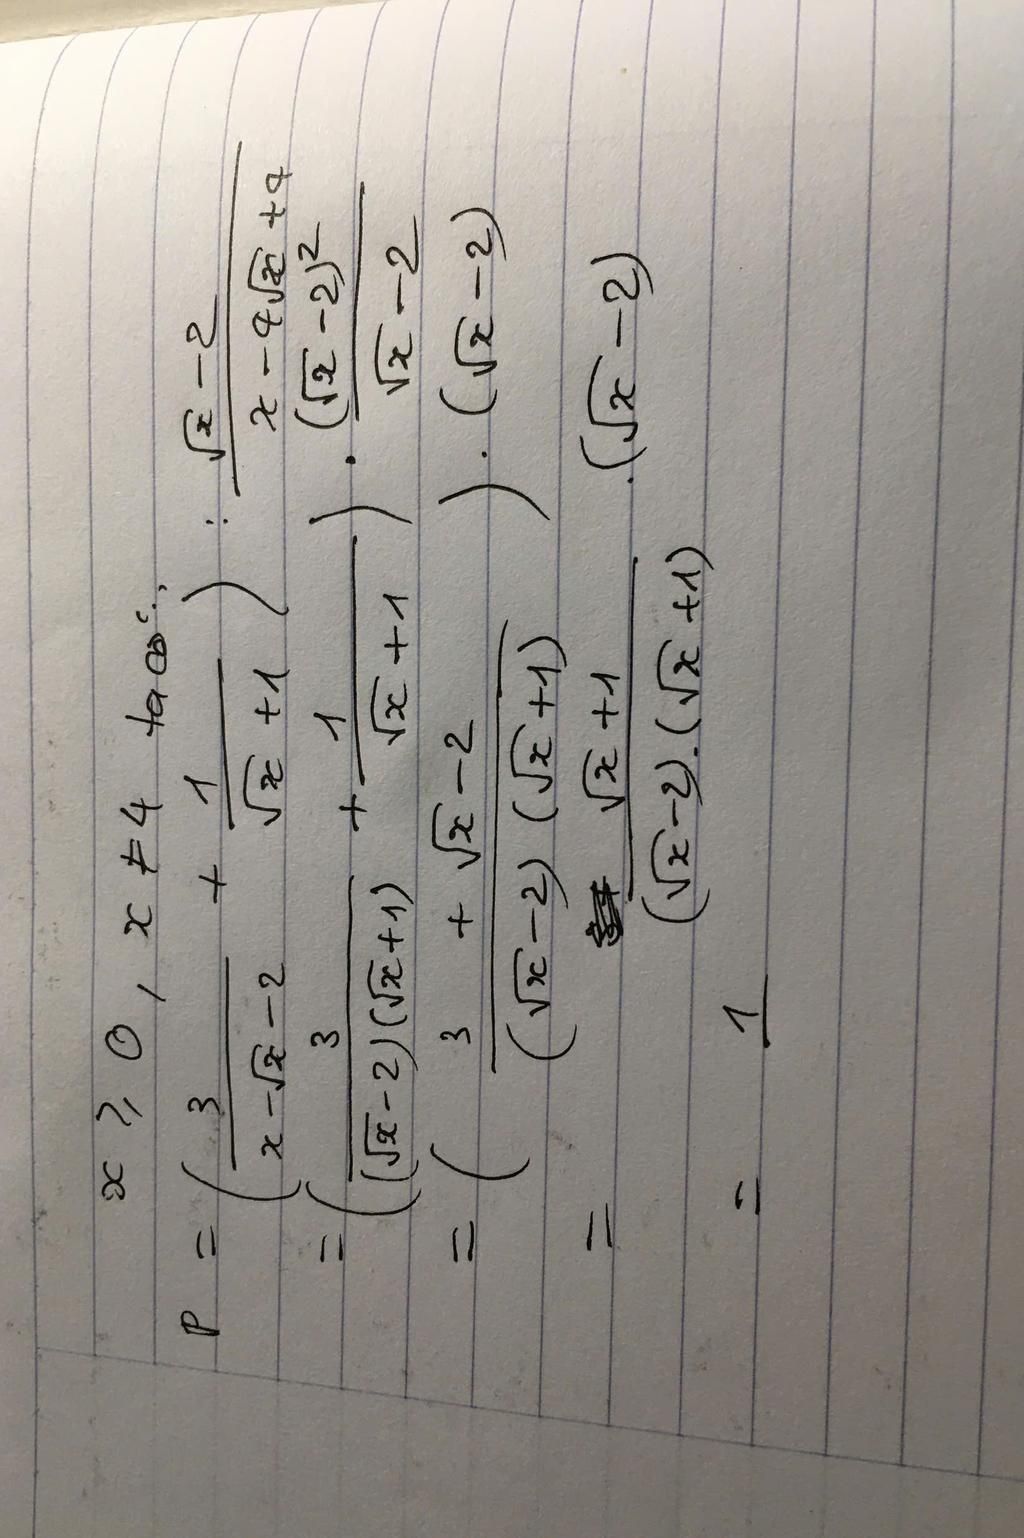 x ⩾ 0, x ≠ 4 ta có:
P = (3/(x - √x - 2) + 1/(√x + 1)) : (√x - 2)/(x - 4√x + 4)
= (3/((√x - 2)(√x + 1)) + 1/(√x + 1)) . (√x - 2)²/(√x - 2)
= ((3 + √x - 2)/((√x - 2)(√x + 1))) . (√x - 2)
= (√x + 1)/((√x - 2).(√x + 1)) . (√x - 2)
= 1